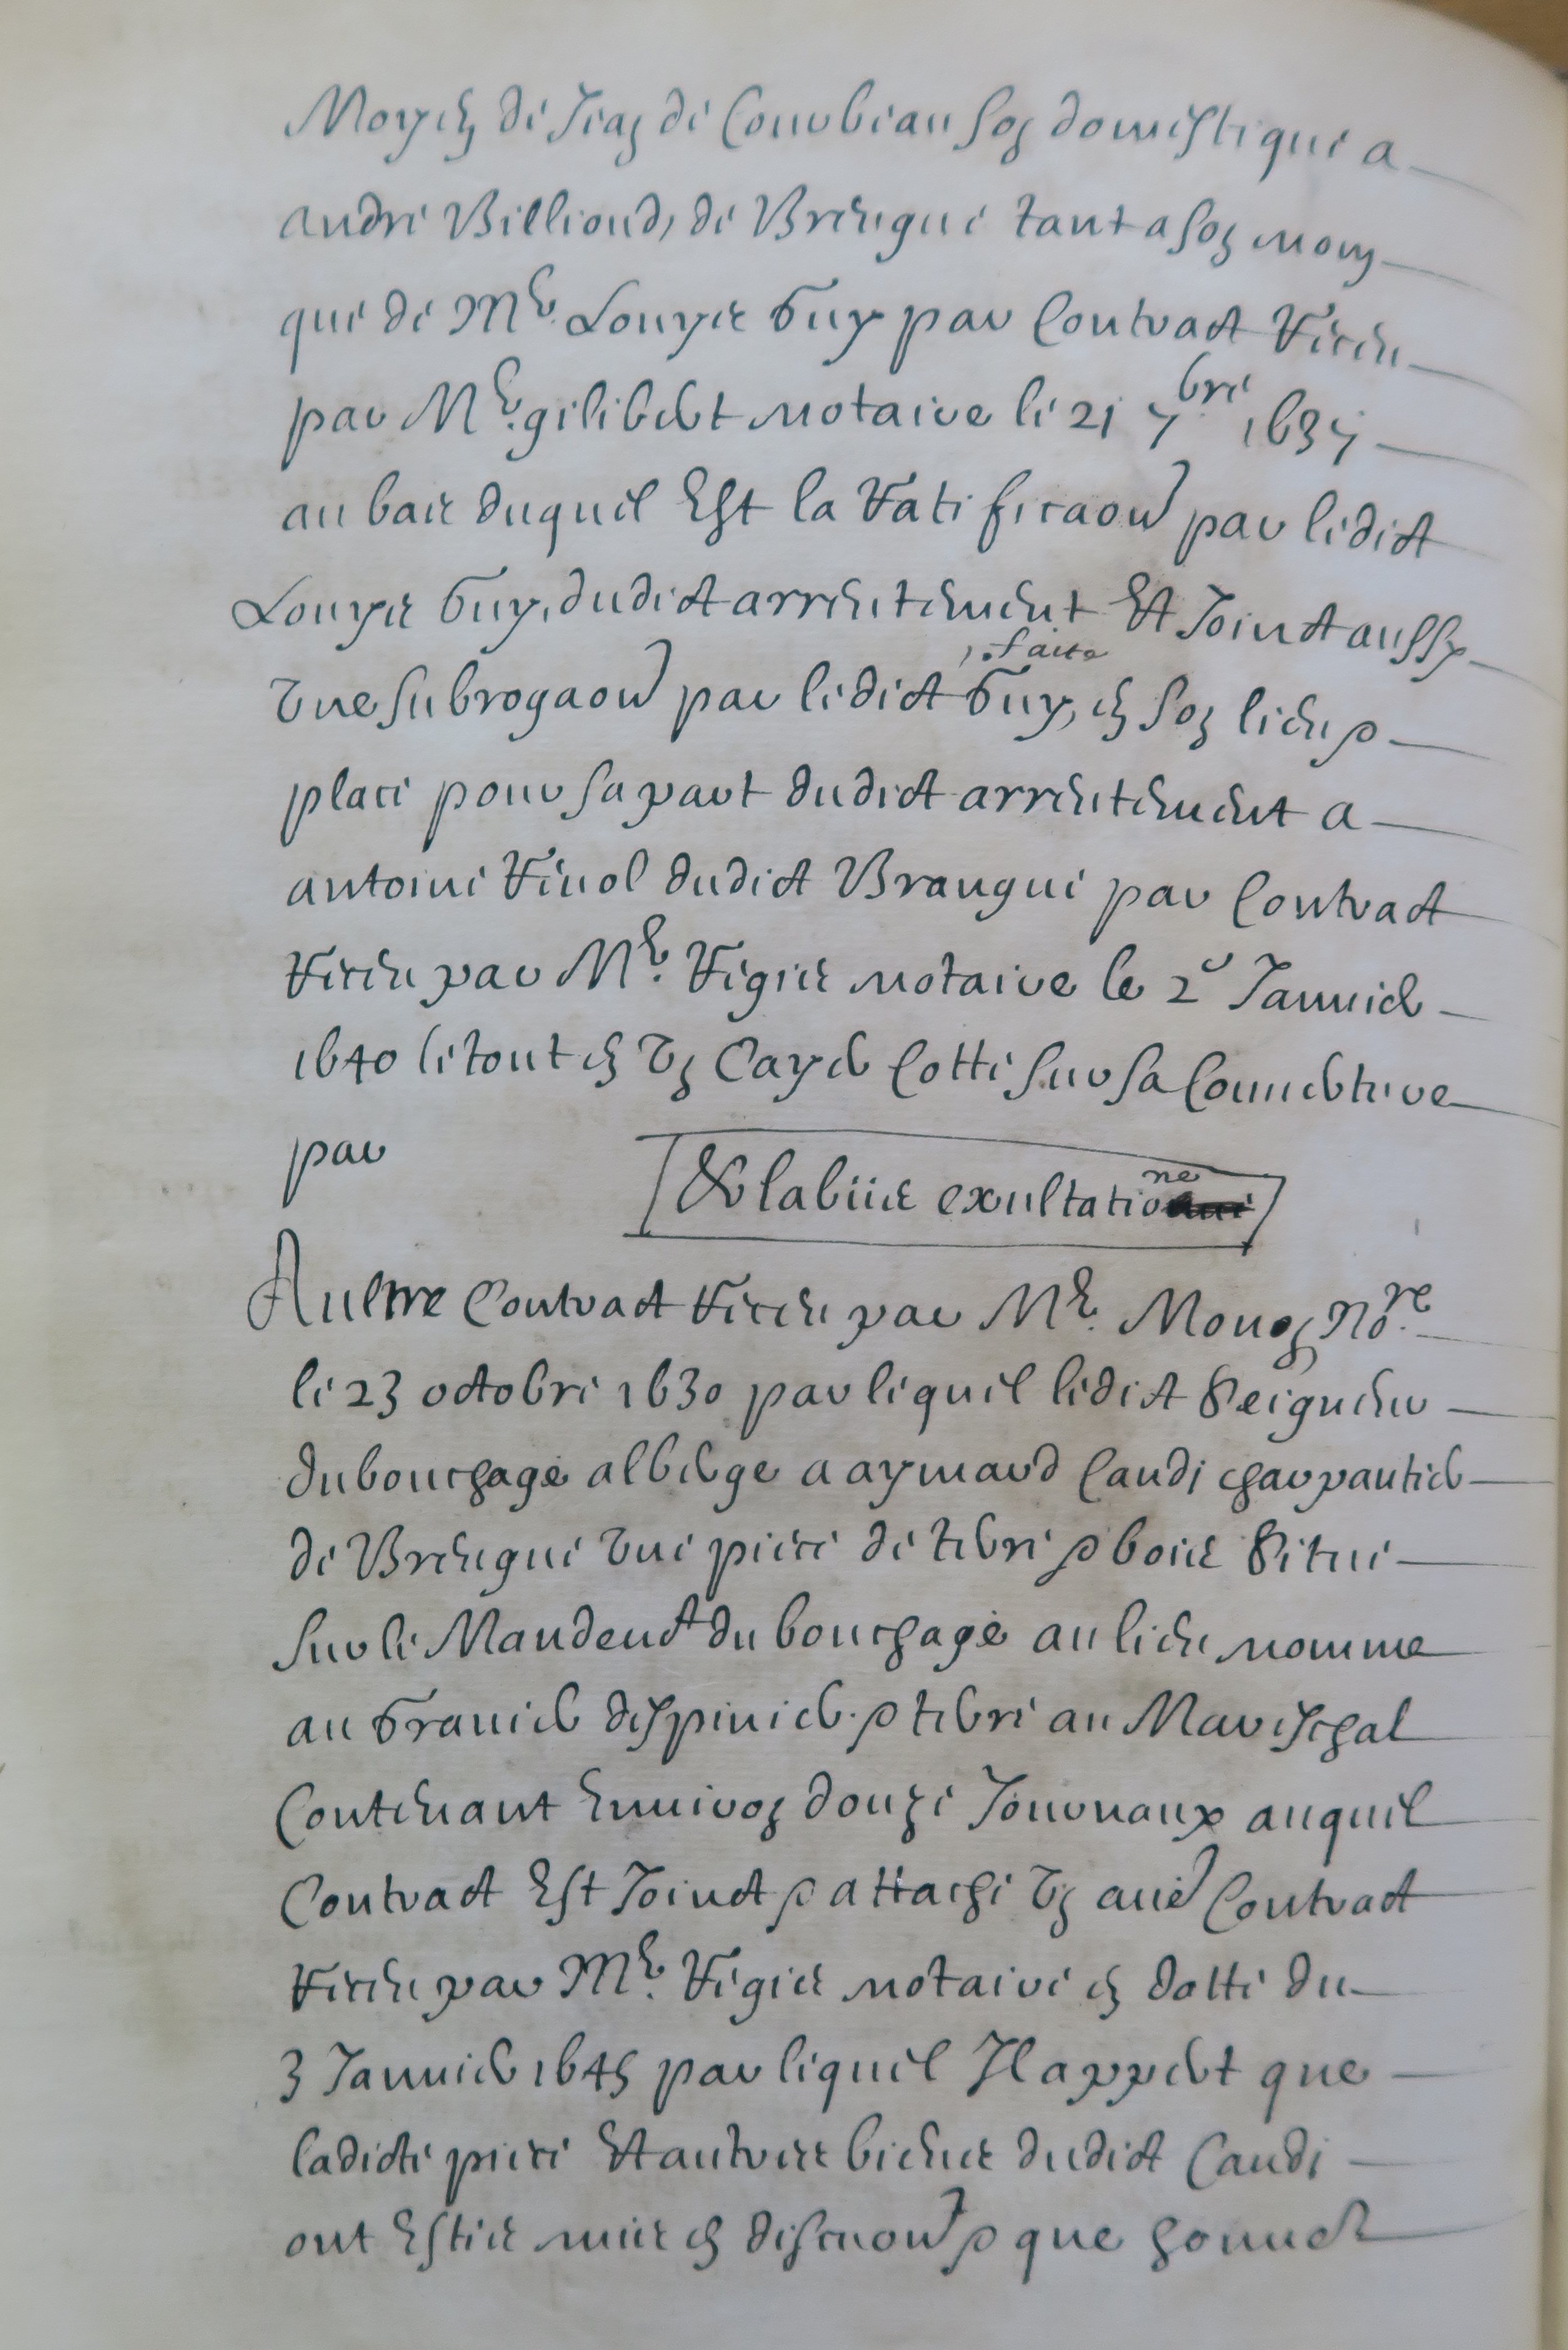 Moyen de Jean de Conubiau son domestique a
andre Billioud, de Brengue tant a son nom
que de Mr. Louys Guy par Contract Receu
par Mr. gilibert notaire le 21 7bre 1637
au bas duquel Est la Ratificaon par ledict
Louys Guy, dudict arrentement Et Joinct aussy
Une subrogaon faite par ledict Guy, en son lieu &
place pour sa part dudict arrentement a
antoine Revol dudict Brangue par Contract
Receu par Mr. Regis notaire le 2e Januier
1640 le tout en Un Cayer Cotté sur sa Couuerture
par
& labiis exultatione
Aultre Contract Receu par Mr. Mouon Nore.
le 23 octobre 1630 par lequel ledict Seigneur
du bouchage alberge a aymard Caudi charpantier
de Brengue Une piece de terre & bois Situé
sur le Mandemt du bouchage au lieu nomme
au Grauier despinier & terre au Mareschal
Contenant Enuiron douze Journaux auquel
Contract Est Joinct & attaché Un aue Contract
Receu par Mr. Regis notaire en datte du
3 Januier 1645 par lequel Il appert que
ladicte piece Et autres biens dudict Caudi
ont Estes mis en discuon & que honnet